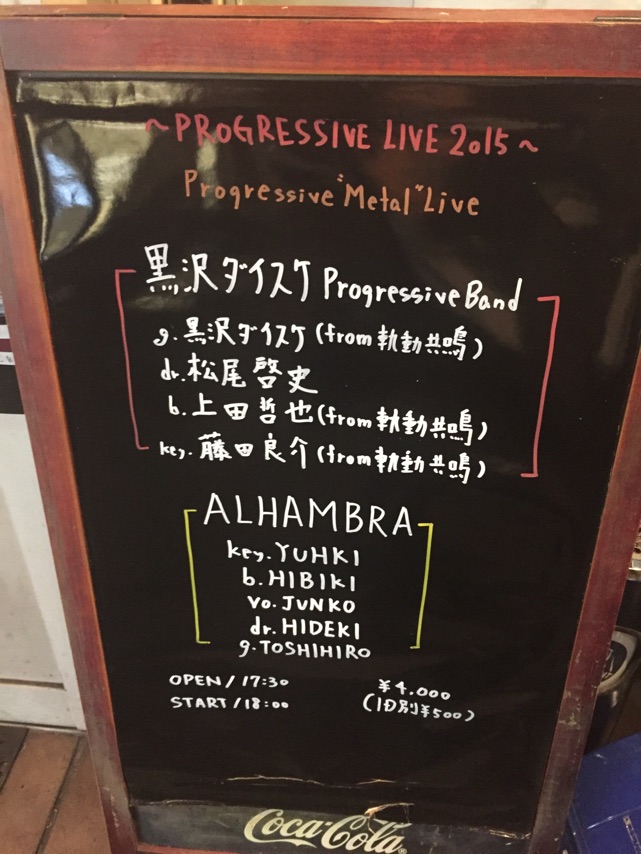 ~PROGRESSIVE LIVE 2015~
Progressive "Metal" Live
黒沢ダイスケ Progressive Band
g. 黒沢ダイスケ (from 執動共鳴)
dr. 松尾啓史
b. 上田哲也 (from 執動共鳴)
key. 藤田良介 (from 執動共鳴)
ALHAMBRA
key. YUHKI
b. HIBIKI
vo. JUNKO
dr. HIDEKI
g. TOSHIHIRO
OPEN / 17:30
START / 18:00
¥4.000
(1D別¥500)
Coca-Cola®